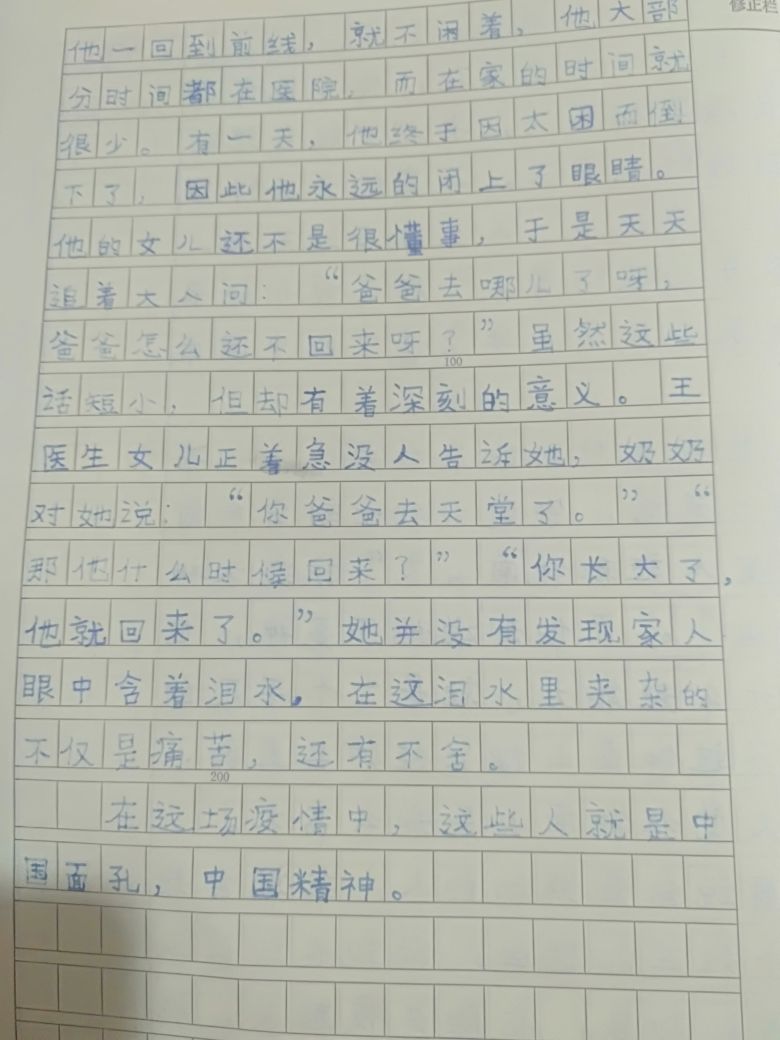 修正栏
他一回到前线，就不闲着，他大部
分时间都在医院，而在家的时间就
很少。有一天，他终于因太困而倒
下了，因此他永远的闭上了眼睛。
他的女儿还不是很懂事，于是天天
追着大人问：“爸爸去哪儿了呀，
爸爸怎么还不回来呀？”虽然这些
100
话短小，但却有着深刻的意义。王
医生女儿正着急没人告诉她，奶奶
对她说：“你爸爸去天堂了。”“
那他什么时候回来？”“你长大了，
他就回来了。”她并没有发现家人
眼中含着泪水。在这泪水里夹杂的
不仅是痛苦，还有不舍。
200
在这场疫情中，这些人就是中
国面孔，中国精神。